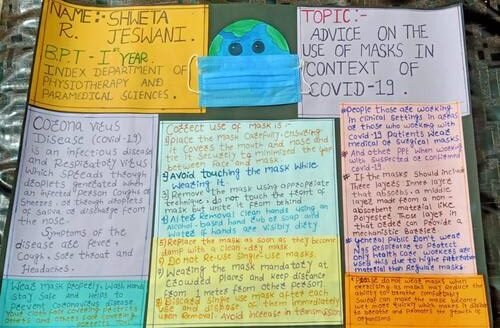 NAME:- SHWETA
R. JESWANI.
B.P.T - Ist YEAR.
INDEX DEPARTMENT OF
PHYSIOTHERAPY AND
PARAMEDICAL SCIENCES.
TOPIC:-
ADVICE ON THE
USE OF MASKS IN
CONTEXT OF
COVID-19.
Corona virus
Disease (covid-19)
is an infectious disease
and Respiratory virus
Which spreads through
droplets generated when
an infected person Coughs or
Sneezes, or through droplets
of saliva or discharge from
the nose.
Symptoms of the
disease are Fever,
Cough, Sore throat and
Headaches.
Wear mask properly, Wash hand
Stay Safe and helps to
prevent Coronavirus disease
Your cloth face covering protects
others and others face covering
protects
Correct use of masks:-
place the mask carefully, ensuring
it Covers the mouth and nose and
tie it securely to minimised the
between face and mask
2) Avoid touching the mask while
wearing it.
3) Remove the mask using appropriate
technique, do not touch the front of
mask but untie it from behind
4) After removal clean hands using an
alcohol-based hand rub or soap and
water if hands are visibly dirty
5) Replace the mask as soon as they become
damp with a clean dry mask
Do not Re-use Single-use masks.
Wearing the mask mandatory at
Crowded places and keep distance
From 1 meter other person
Discard single use mask after each
use and dispose of them immediately
upon removal. Avoid increase in transmission
People those are working
in clinical settings in areas
or those who working with
Covid-19 Patients wear
medical or surgical masks
And other PPE when working
with suspected or confirmed
covid-19
If the masks should include
three layers inner layer
that absorbs, a middle
layer made from a non-
absorbent material like
Polyester. Those layers in
that order can provide a
mechanistic barrier
General public Don't wear
N95 Respirator to protect,
only health care workers are
used this due to the
material than Regular masks
Please do not wear masks when
exercising as masks may reduce the
ability to breathe comfortably
Sweat can make the mask become
wet more quickly which makes it difficult
to breathe and promotes the growth of